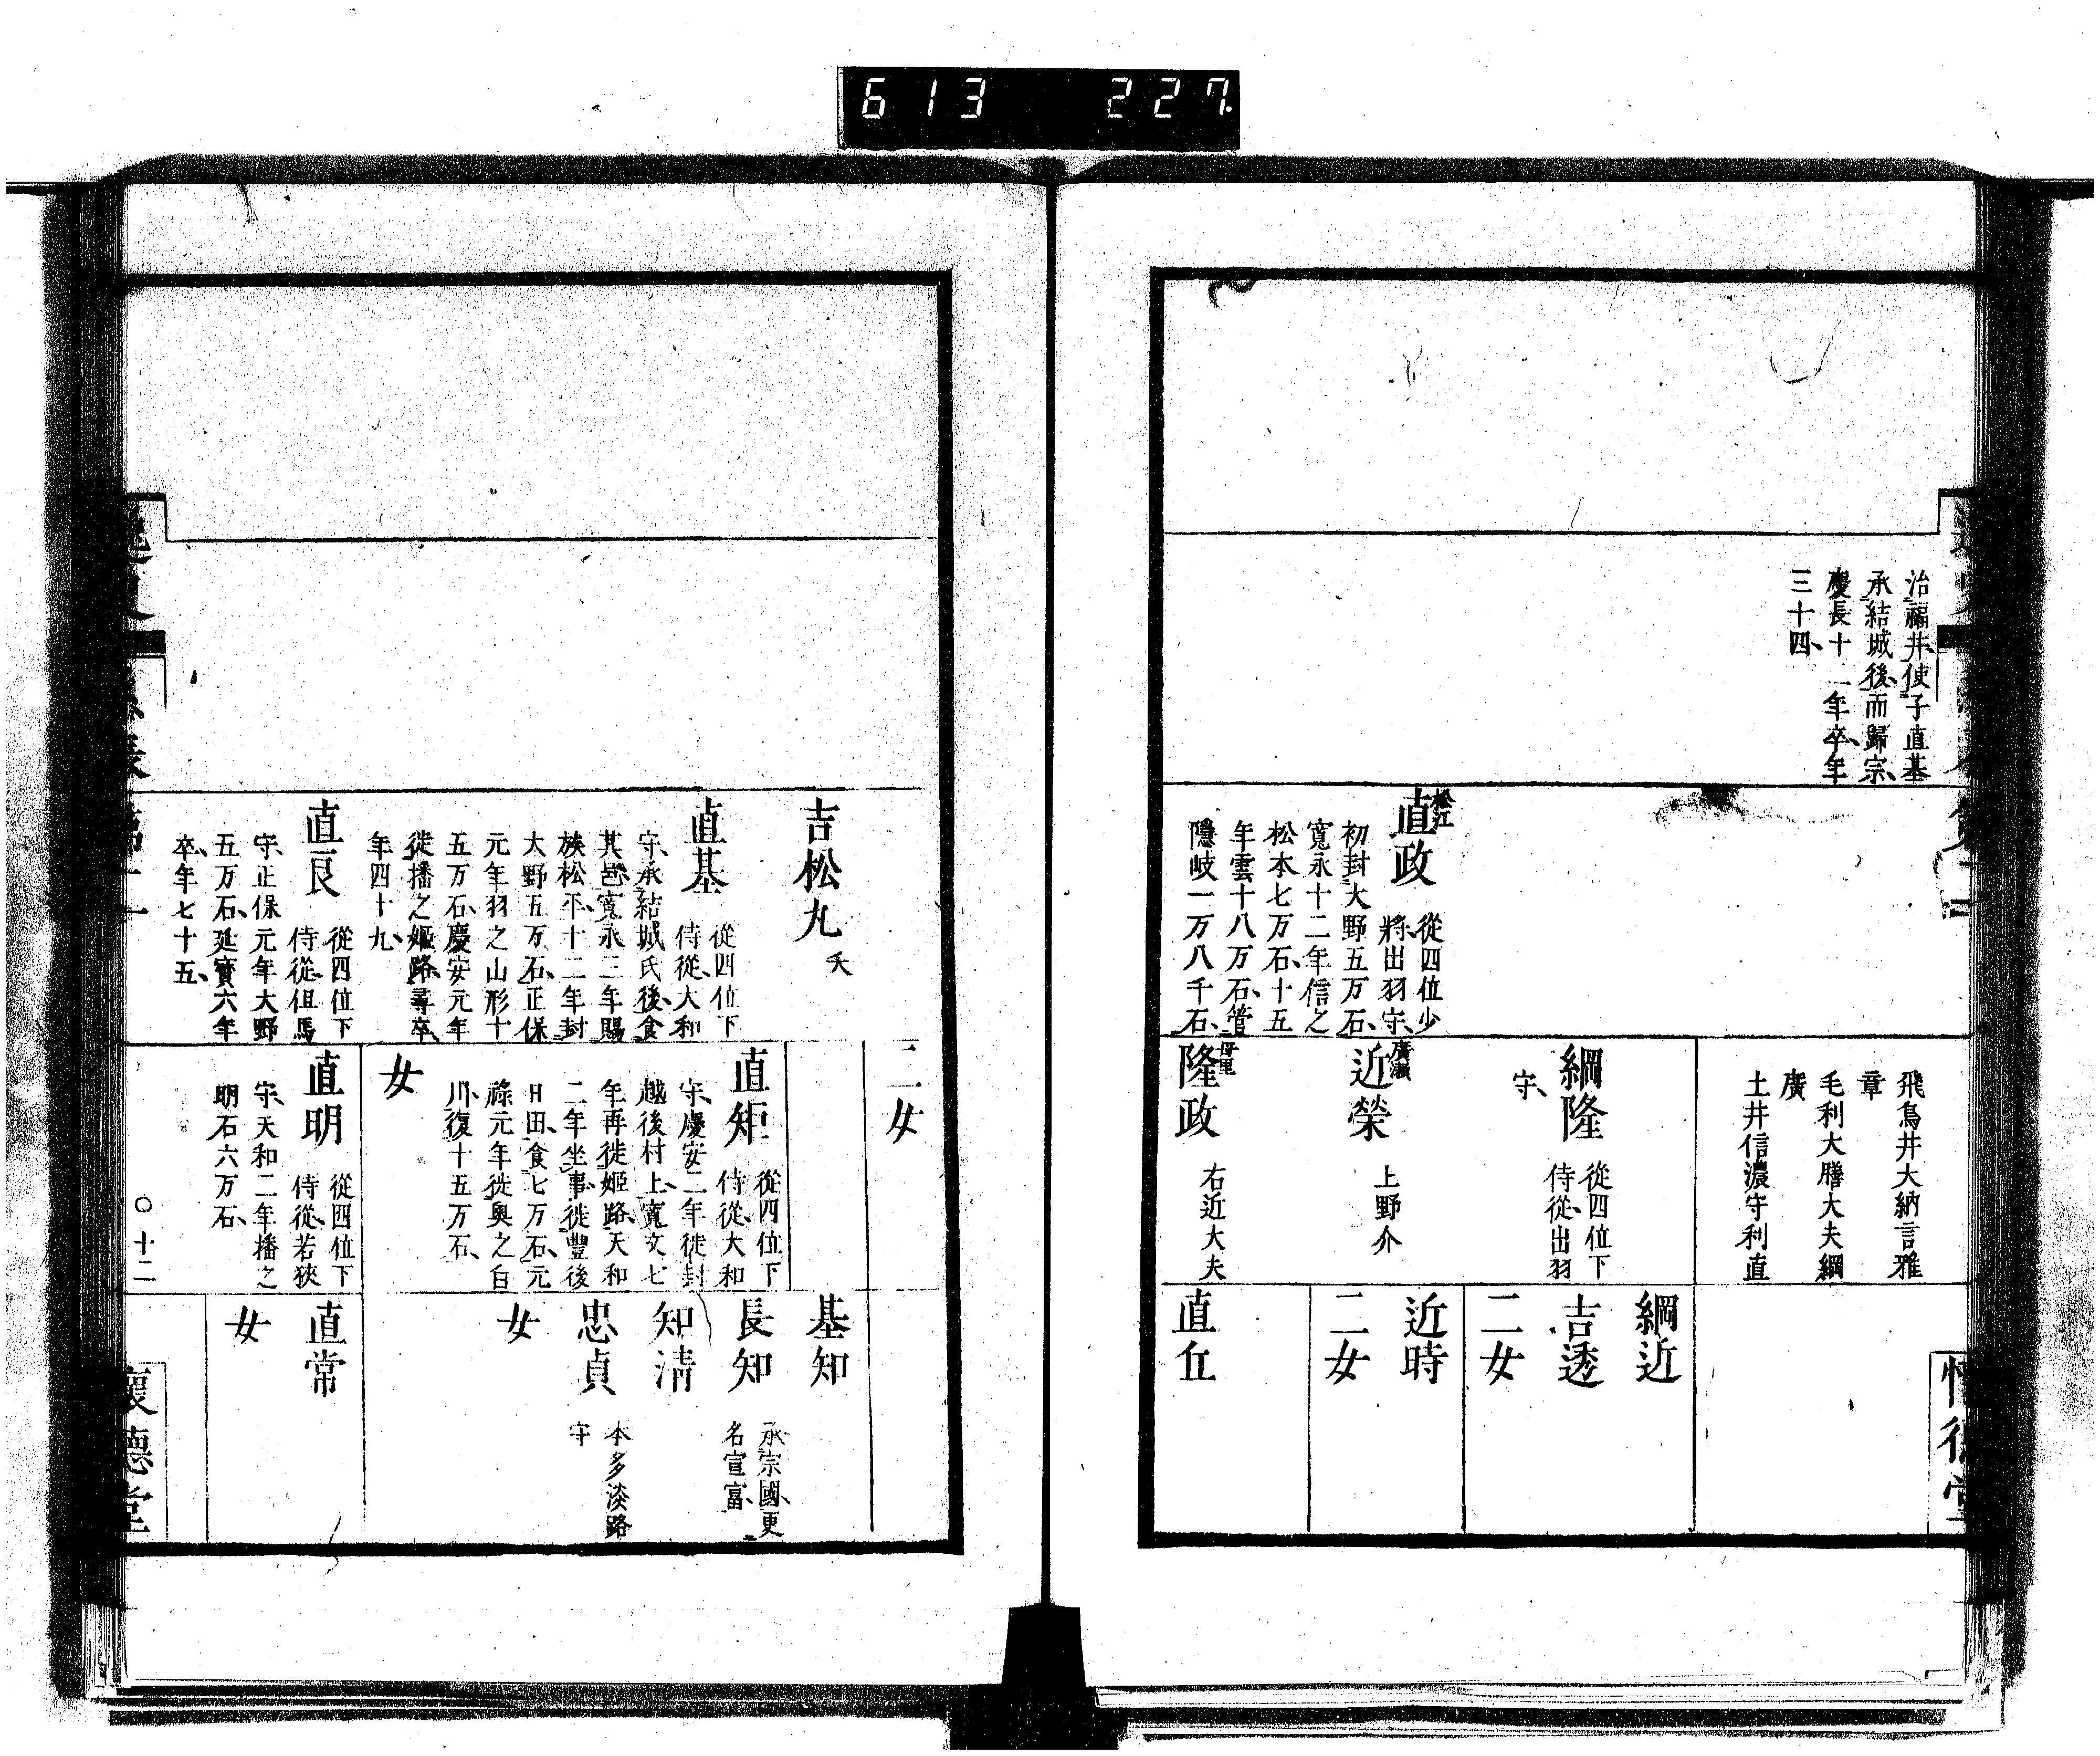 613 227
治福井、使子直基
承結城後、而歸宗、
慶長十一年卒、年
三十四、
松江
直政
從四位少
將、出羽守、
初封大野五万石、
寬永十二年信之
松本七万石、十五
年雲十八万石、管
隱岐一万八千石、
飛鳥井大納言雅
章
毛利大膳大夫綱
廣
土井信濃守利直
綱隆
從四位下
侍從、出羽
守、
廣瀬
近榮
上野介
母里
隆政
右近大夫
綱近
吉透
二女
近時
二女
直丘
吉松丸
夭
直基
從四位下
侍從、大和
守、承結城氏後、食
其邑、寬永三年賜
族松平、十二年封
大野五万石、正保
元年羽之山形十
五万石、慶安元年
徙播之姬路、尋卒、
年四十九、
直良
從四位下
侍從、但馬
守、正保元年大野
五万石、延寶六年
卒、年七十五、
二女
直矩
從四位下
侍從、大和
守、慶安二年徙封
越後村上、寬文七
年再徙姬路、天和
二年坐事、徙豐後
日田、食七万石、元
祿元年徙奧之白
川、復十五万石、
女
直明
從四位下
侍從、若狹
守、天和二年播之
明石六万石、
基知
長知
承宗國、更
名宣富、
知清
忠貞
本多淡路
守
女
直常
女
〇十二
懷德堂